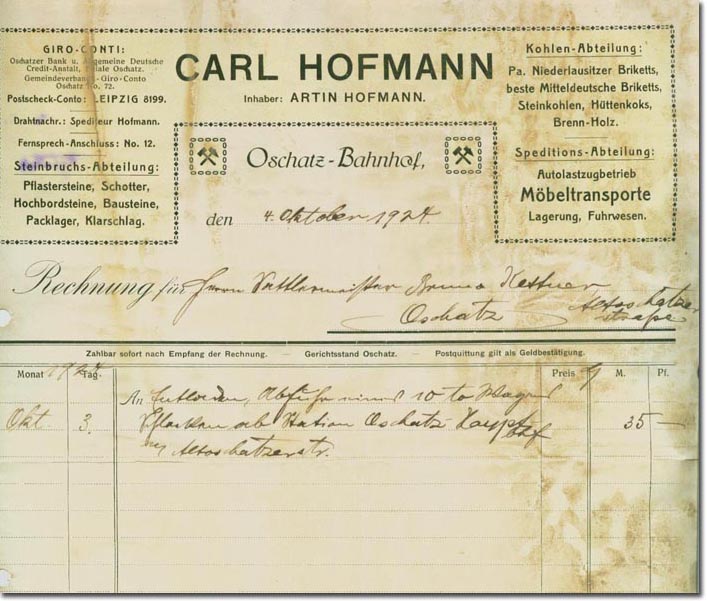 GIRO-CONTI:
Oschatzer Bank u. Allgemeine Deutsche
Credit-Anstalt, Filiale Oschatz.
Gemeindeverbands-Giro-Conto
Oschatz No. 72.
Postscheck-Conto: LEIPZIG 8199.
Drahtnachr.: Spediteur Hofmann.
Fernsprech-Anschluss: No. 12.
Steinbruchs-Abteilung:
Pflastersteine, Schotter,
Hochbordsteine, Bausteine,
Packlager, Klarschlag.
CARL HOFMANN
Inhaber: ARTIN HOFMANN.
Oschatz-Bahnhof,
den 4. Oktober 1924
Kohlen-Abteilung:
Pa. Niederlausitzer Briketts,
beste Mitteldeutsche Briketts,
Steinkohlen, Hüttenkoks,
Brenn-Holz.
Speditions-Abteilung:
Autolastzugbetrieb
Möbeltransporte
Lagerung, Fuhrwesen.
Rechnung für Herrn Sattlermeister Bruno
Oschatz Altoschatzer
strasse
Zahlbar sofort nach Empfang der Rechnung. — Gerichtsstand Oschatz. — Postquittung gilt als Geldbestätigung.
Monat 1924 Tag. Preis M. Pf.
An Entladen, Abfuhr eines 10 to Wagen
Okt. 3. Schlacken ab Station Oschatz Hauptbhf 35 —
Altoschatzerstr.